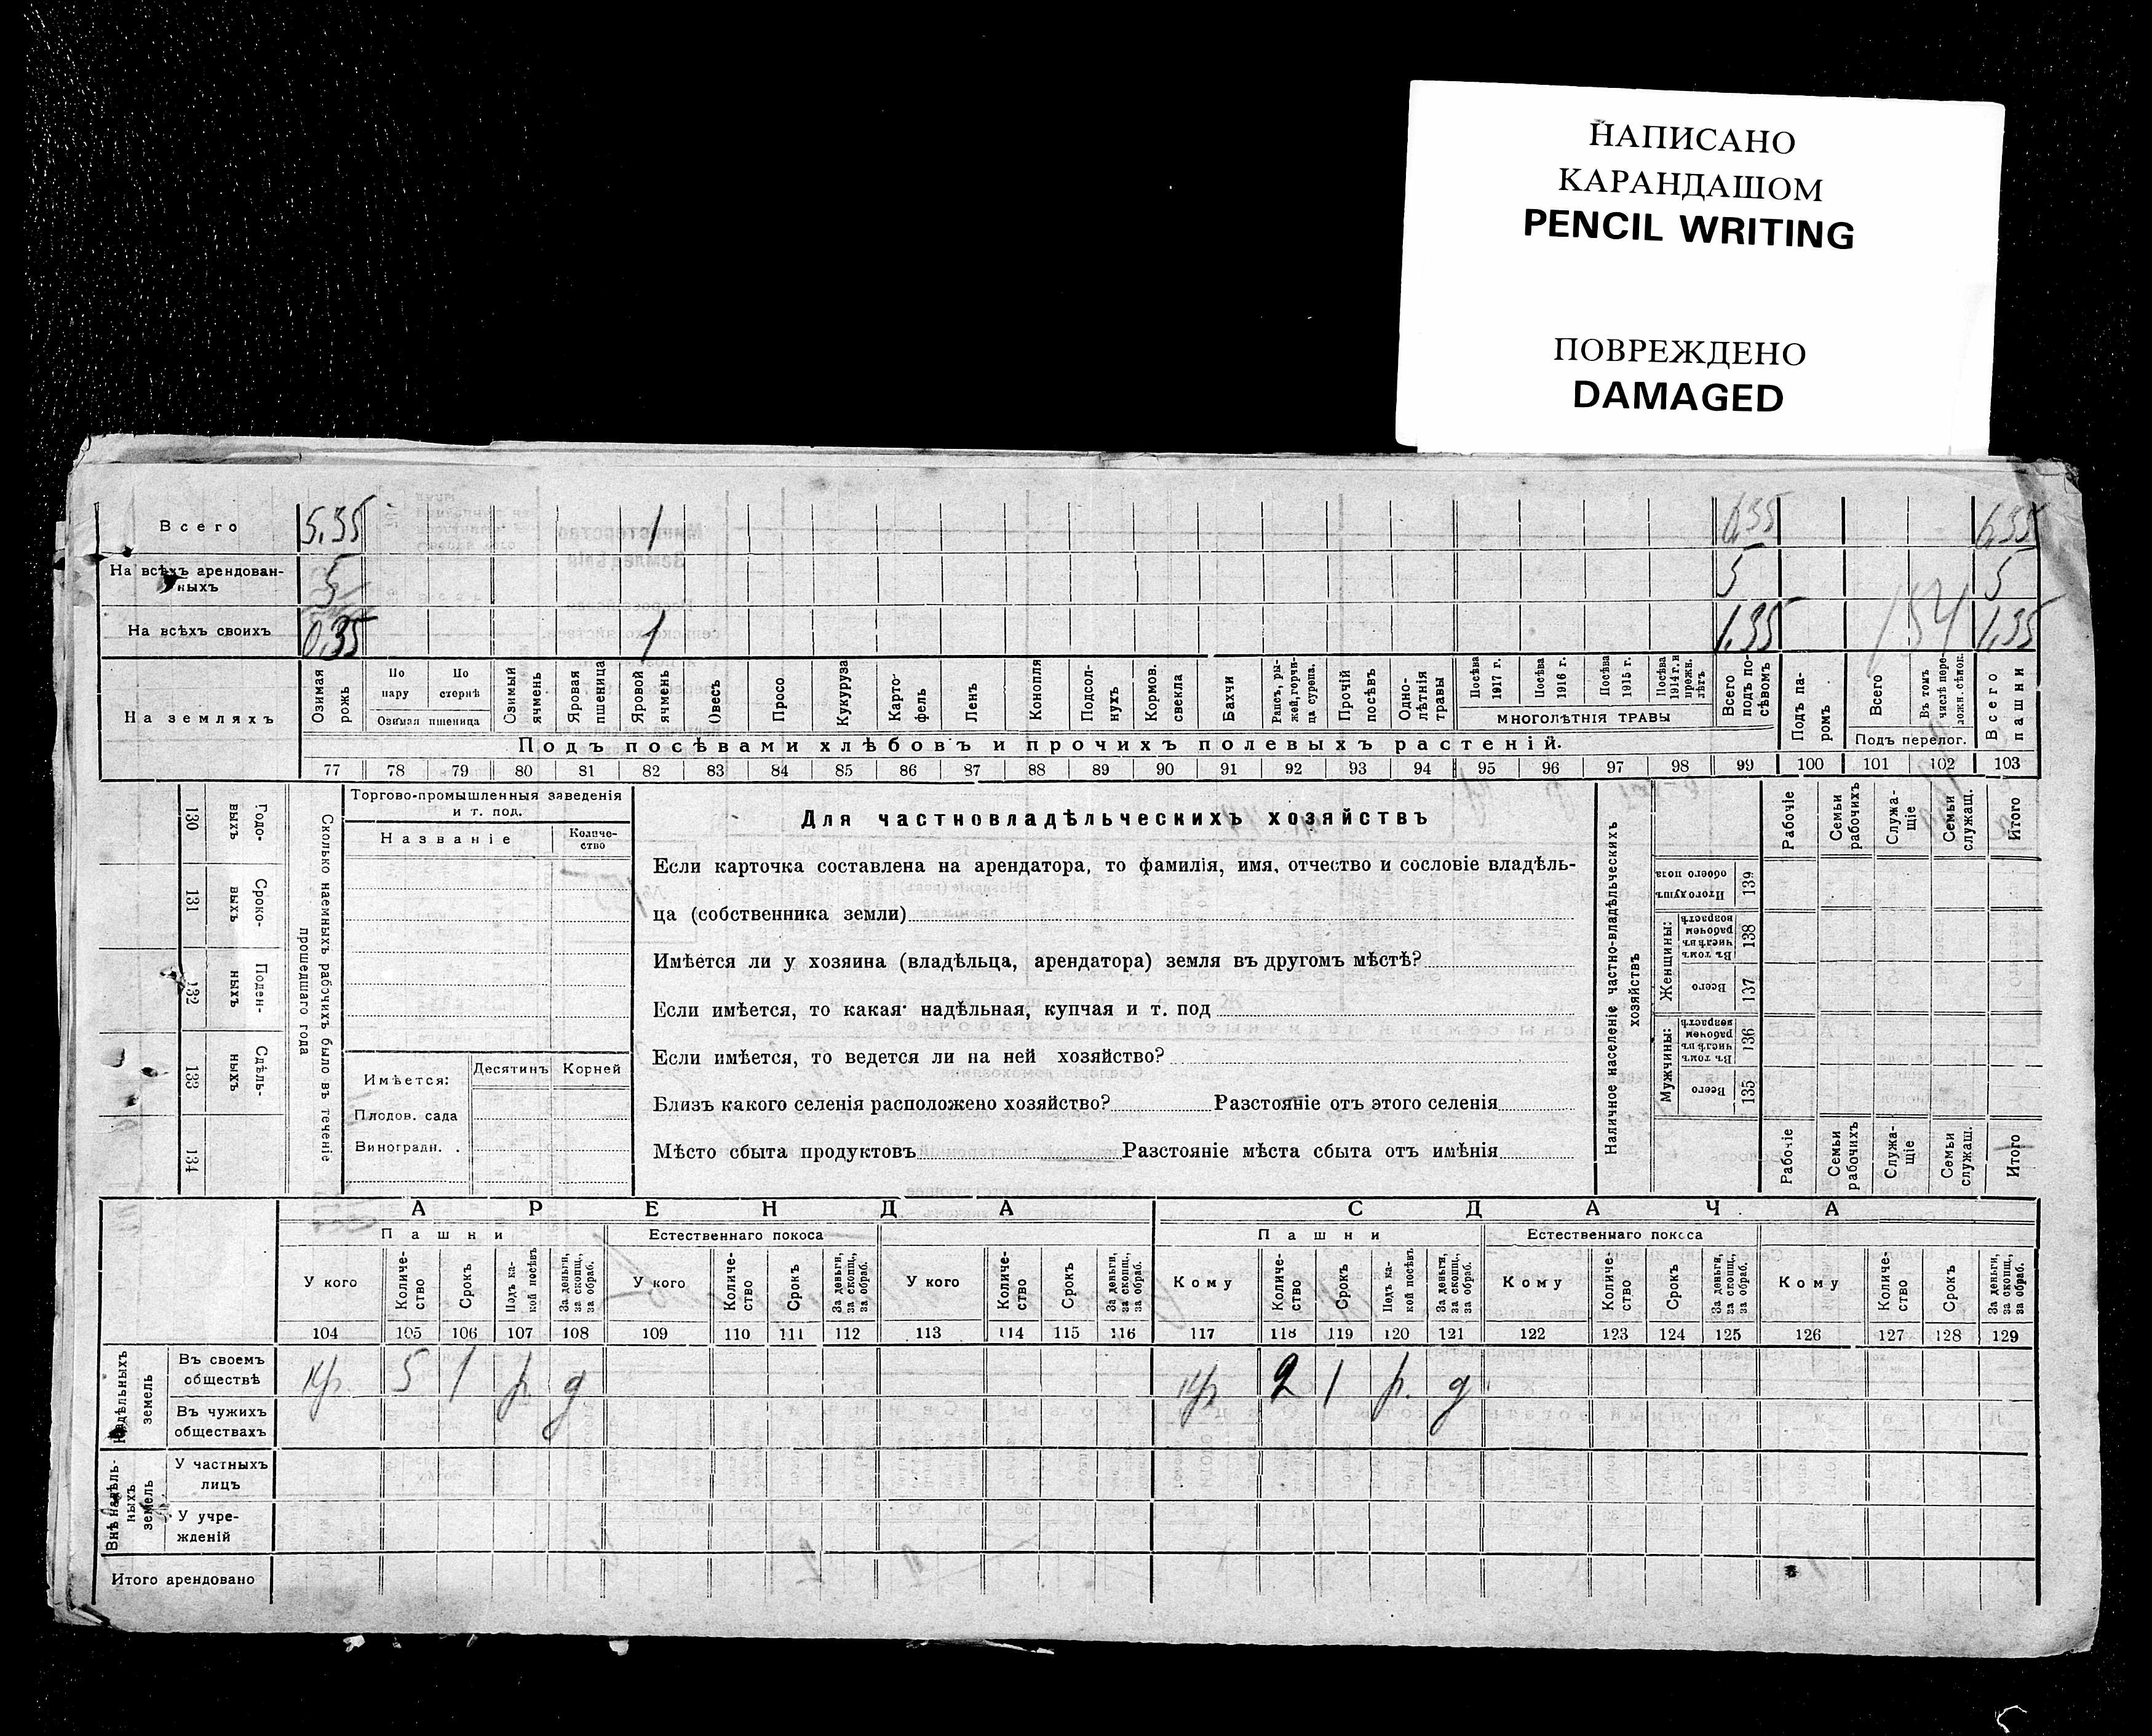 НАПИСАНО
КАРАНДАШОМ
PENCIL WRITING
ПОВРЕЖДЕНО
DAMAGED
Всего 5,35 1 6,35 6,35
На всѣхъ арендован-
ныхъ 5 5 5
На всѣхъ своихъ 0,35 1 1,35 154 1,35
На земляхъ
Озимая рожь
По пару
По стернѣ
Озимая пшеница
Озимый ячмень
Яровая пшеница
Яровой ячмень
Овесъ
Просо
Кукуруза
Карто-
фель
Ленъ
Конопля
Подсол-
нухъ
Кормов. свекла
Бахчи
Рапсъ, ры-
жей, горчи-
ца сурепа.
Прочій посѣвъ
Одно-
лѣтнія травы
Посѣва 1917 г.
Посѣва 1916 г.
Посѣва 1915 г.
Посѣва 1914 г. и прежн. лѣтъ
МНОГОЛѢТНІЯ ТРАВЫ
Всего подъ по-
сѣвомъ
Подъ па-
ромъ
Всего
Въ томъ числѣ пере-
ложн. сѣнок.
Подъ перелог.
Всего пашни
Подъ посѣвами хлѣбовъ и прочихъ полевыхъ растеній.
77 78 79 80 81 82 83 84 85 86 87 88 89 90 91 92 93 94 95 96 97 98 99 100 101 102 103
130 Годо-
выхъ
131 Сроко-
выхъ
132 Поден-
ныхъ
133 Сдѣль-
ныхъ
134
Сколько наемныхъ рабочихъ было въ теченіе
прошедшаго года
Торгово-промышленныя заведенія
и т. под.
Названіе
Количе-
ство
Имѣется: Десятинъ Корней
Плодов. сада
Виноградн. .
Для частновладѣльческихъ хозяйствъ
Если карточка составлена на арендатора, то фамилія, имя, отчество и сословіе владѣль-
ца (собственника земли)
Имѣется ли у хозяина (владѣльца, арендатора) земля въ другомъ мѣстѣ?
Если имѣется, то какая надѣльная, купчая и т. под
Если имѣется, то ведется ли на ней хозяйство?
Близъ какого селенія расположено хозяйство? Разстояніе отъ этого селенія
Мѣсто сбыта продуктовъ Разстояніе мѣста сбыта отъ имѣнія
Наличное населеніе частно-владѣльческихъ
хозяйствъ
Рабочіе
Семьи рабочихъ
Служа-
щіе
Семьи служащ.
Итого
Итого душъ обоего пола 139
Женщины:
Въ томъ числѣ въ рабочемъ возрастѣ 138
Всего 137
Мужчины:
Въ томъ числѣ въ рабочемъ возрастѣ 136
Всего 135
Рабочіе
Семьи рабочихъ
Служа-
щіе
Семьи служащ.
Итого
АРЕНДА СДАЧА
Пашни Естественнаго покоса Пашни Естественнаго покоса
У кого
Количе-
ство
Срокъ
Подъ ка-
кой посѣвъ
За деньги, за скопщ., за обраб.
У кого
Количе-
ство
Срокъ
За деньги, за скопщ., за обраб.
У кого
Количе-
ство
Срокъ
За деньги, за скопщ., за обраб.
Кому
Количе-
ство
Срокъ
Подъ ка-
кой посѣвъ
За деньги, за скопщ., за обраб.
Кому
Количе-
ство
Срокъ
За деньги, за скопщ., за обраб.
Кому
Количе-
ство
Срокъ
За деньги, за скопщ., за обраб.
104 105 106 107 108 109 110 111 112 113 114 115 116 117 118 119 120 121 122 123 124 125 126 127 128 129
Надѣльныхъ
земель
Въ своемъ
обществѣ кр 5 1 р д кр 2 1 р. д
Въ чужихъ
обществахъ
Внѣ надѣль-
ныхъ
земель
У частныхъ
лицъ
У учре-
жденій
Итого арендовано